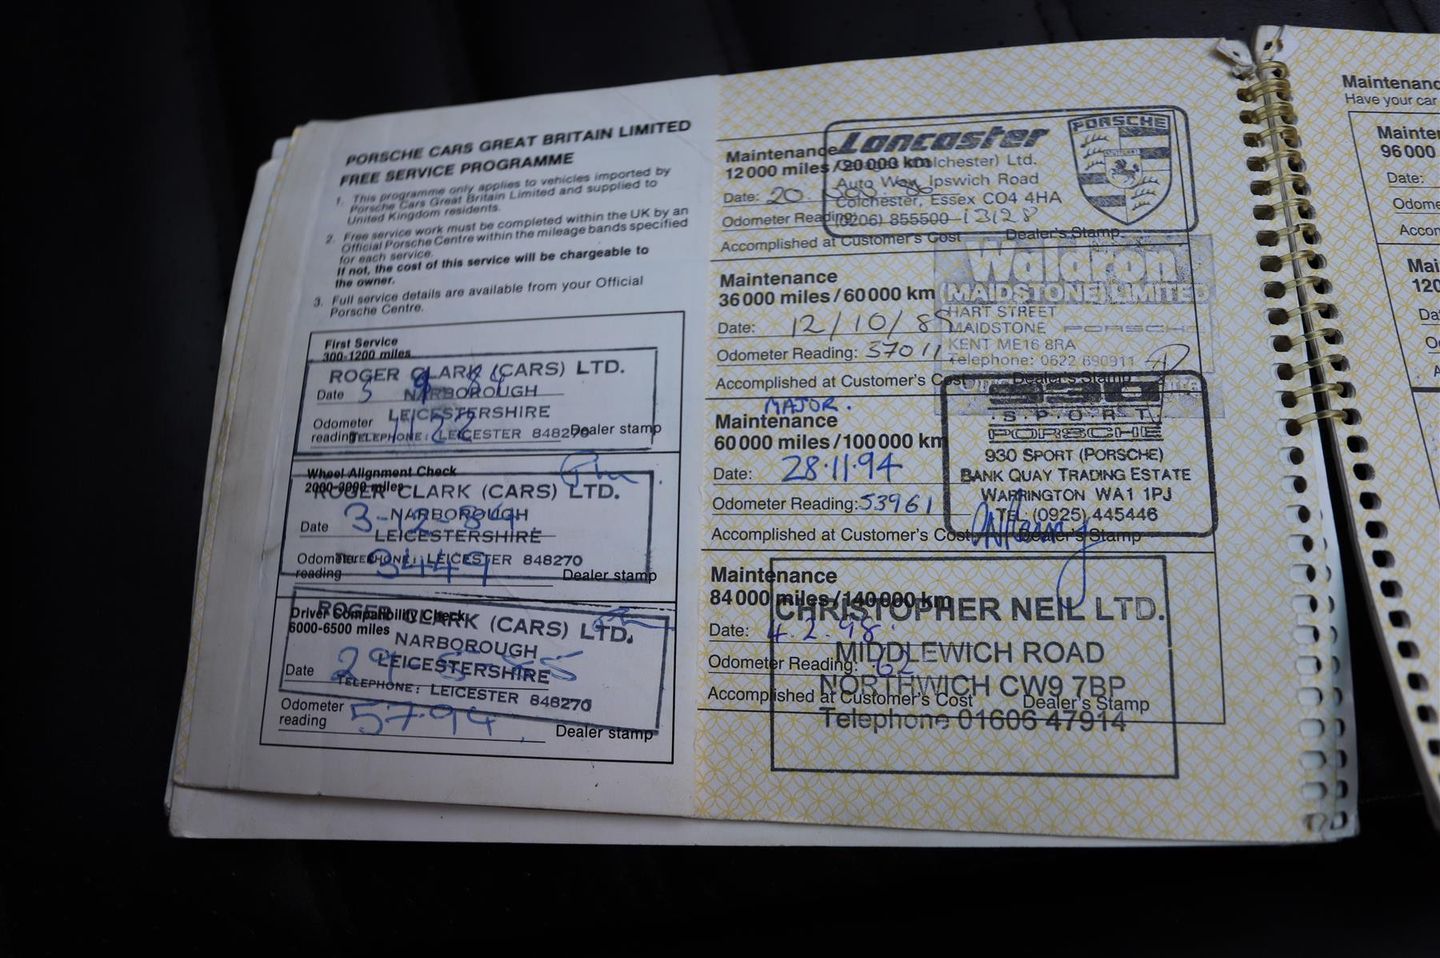 PORSCHE CARS GREAT BRITAIN LIMITED
FREE SERVICE PROGRAMME
1. This programme only applies to vehicles imported by
Porsche Cars Great Britain Limited and supplied to
United Kingdom residents.
2. Free service work must be completed within the UK by an
Official Porsche Centre within the mileage bands specified
for each service.
If not, the cost of this service will be chargeable to
the owner.
3. Full service details are available from your Official
Porsche Centre.
First Service
300-1200 miles
ROGER CLARK (CARS) LTD.
Date 3 9 84 NARBOROUGH
LEICESTERSHIRE
Odometer
reading 1122 TELEPHONE: LEICESTER 848270 Dealer stamp
Wheel Alignment Check
2000-3000 miles
ROGER CLARK (CARS) LTD.
NARBOROUGH
Date 3-12-84
LEICESTERSHIRE
Odometer TELEPHONE: LEICESTER 848270
reading 3449 Dealer stamp
Driver Compatibility Check
6000-6500 miles
ROGER CLARK (CARS) LTD.
NARBOROUGH
LEICESTERSHIRE
Date 29 85
TELEPHONE: LEICESTER 848270
Odometer
reading 5794 Dealer stamp
Maintenance
12 000 miles / 20 000 km
Lancaster
PORSCHE
(Colchester) Ltd.
Auto Way, Ipswich Road
Colchester, Essex CO4 4HA
(0206) 855500
Date: 20
Odometer Reading: 13128
Accomplished at Customer's Cost Dealer's Stamp
Maintenance
36 000 miles / 60 000 km
Waldron
(MAIDSTONE) LIMITED
HART STREET
MAIDSTONE PORSCHE
KENT ME16 8RA
Telephone: 0622 690911
Date: 12/10/89
Odometer Reading: 37011
Accomplished at Customer's Cost Dealer's Stamp
MAJOR.
Maintenance
60 000 miles / 100 000 km
930
SPORT
PORSCHE
930 SPORT (PORSCHE)
BANK QUAY TRADING ESTATE
WARRINGTON WA1 1PJ
TEL: (0925) 445446
Date: 28.11.94
Odometer Reading: 53961
Accomplished at Customer's Cost Dealer's Stamp
Maintenance
84 000 miles / 140 000 km
CHRISTOPHER NEIL LTD.
MIDDLEWICH ROAD
NORTHWICH CW9 7BP
Telephone 01606 47914
Date: 4.2.98
Odometer Reading: 62
Accomplished at Customer's Cost Dealer's Stamp
Have your car
96 000
Date: